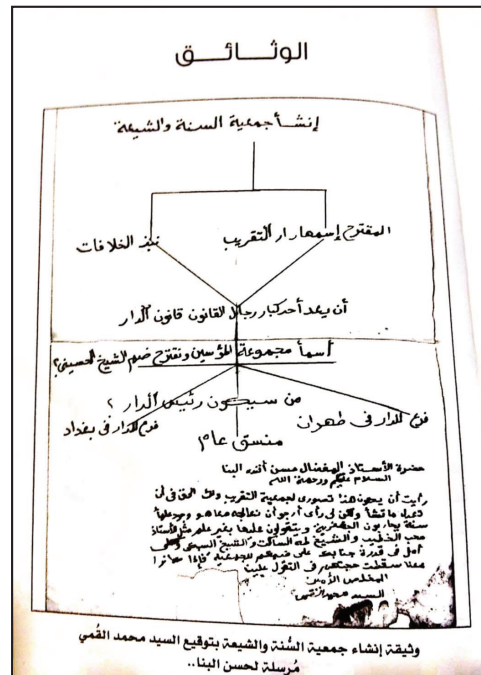 الوثائق
إنشأ جمعية السنة والشيعة
المقترح إسمها دار التقريب
نبذ الخلافات
أن يعد أحد كبار رجال القانون قانون الدار
أسمأ مجموعة المؤسين ونقترح ضم الشيخ الحسيني؟
من سيكون رئيس الدار ؟
فرع للدار فى طهران
فرع للدار فى بغداد
منسق عام
حضرة الأستاذ المفضال حسن أفندى البنا
السلام عليكم ورحمة الله
رأيت أن يكون هذا تصورى لجمعية التقريب ولك الحق فى أن
تعدل ما تشأ ولكن لى رأى أرجو أن نعالجه معا هو وجود علمأ
سنة يحاربون الجعفريين ويتقولون عليها بغير علم مثل الأستاذ
محب الخطيب والشيخ طه الساكت والشيخ السبكى وكلى
أمل فى قدرة جنابكم على ضمهم للجمعية فإذا
معنا سقطت حجتهم فى التقول علينا
المخلص الأمين
السيد محمد القمى
وثيقة إنشاء جمعية السُّنة والشيعة بتوقيع السيد محمد القُمي
مُرسلة لحسن البنا..